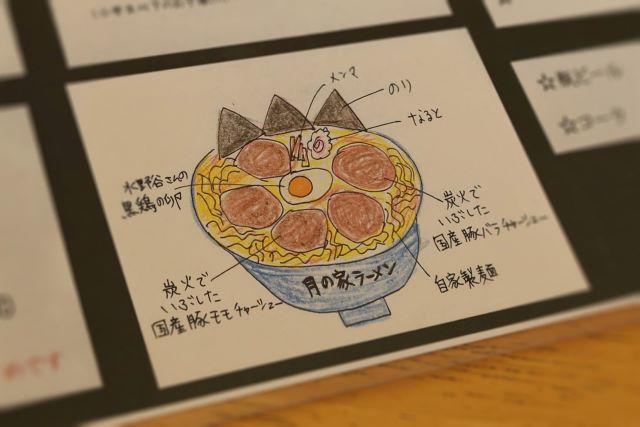 メンマ
のり
なると
水野谷さんの
黒鶏の卵
炭火で
いぶした
国産豚バラチャーシュー
炭火で
いぶした
国産豚モモチャーシュー
自家製麺
月の家ラーメン
のです